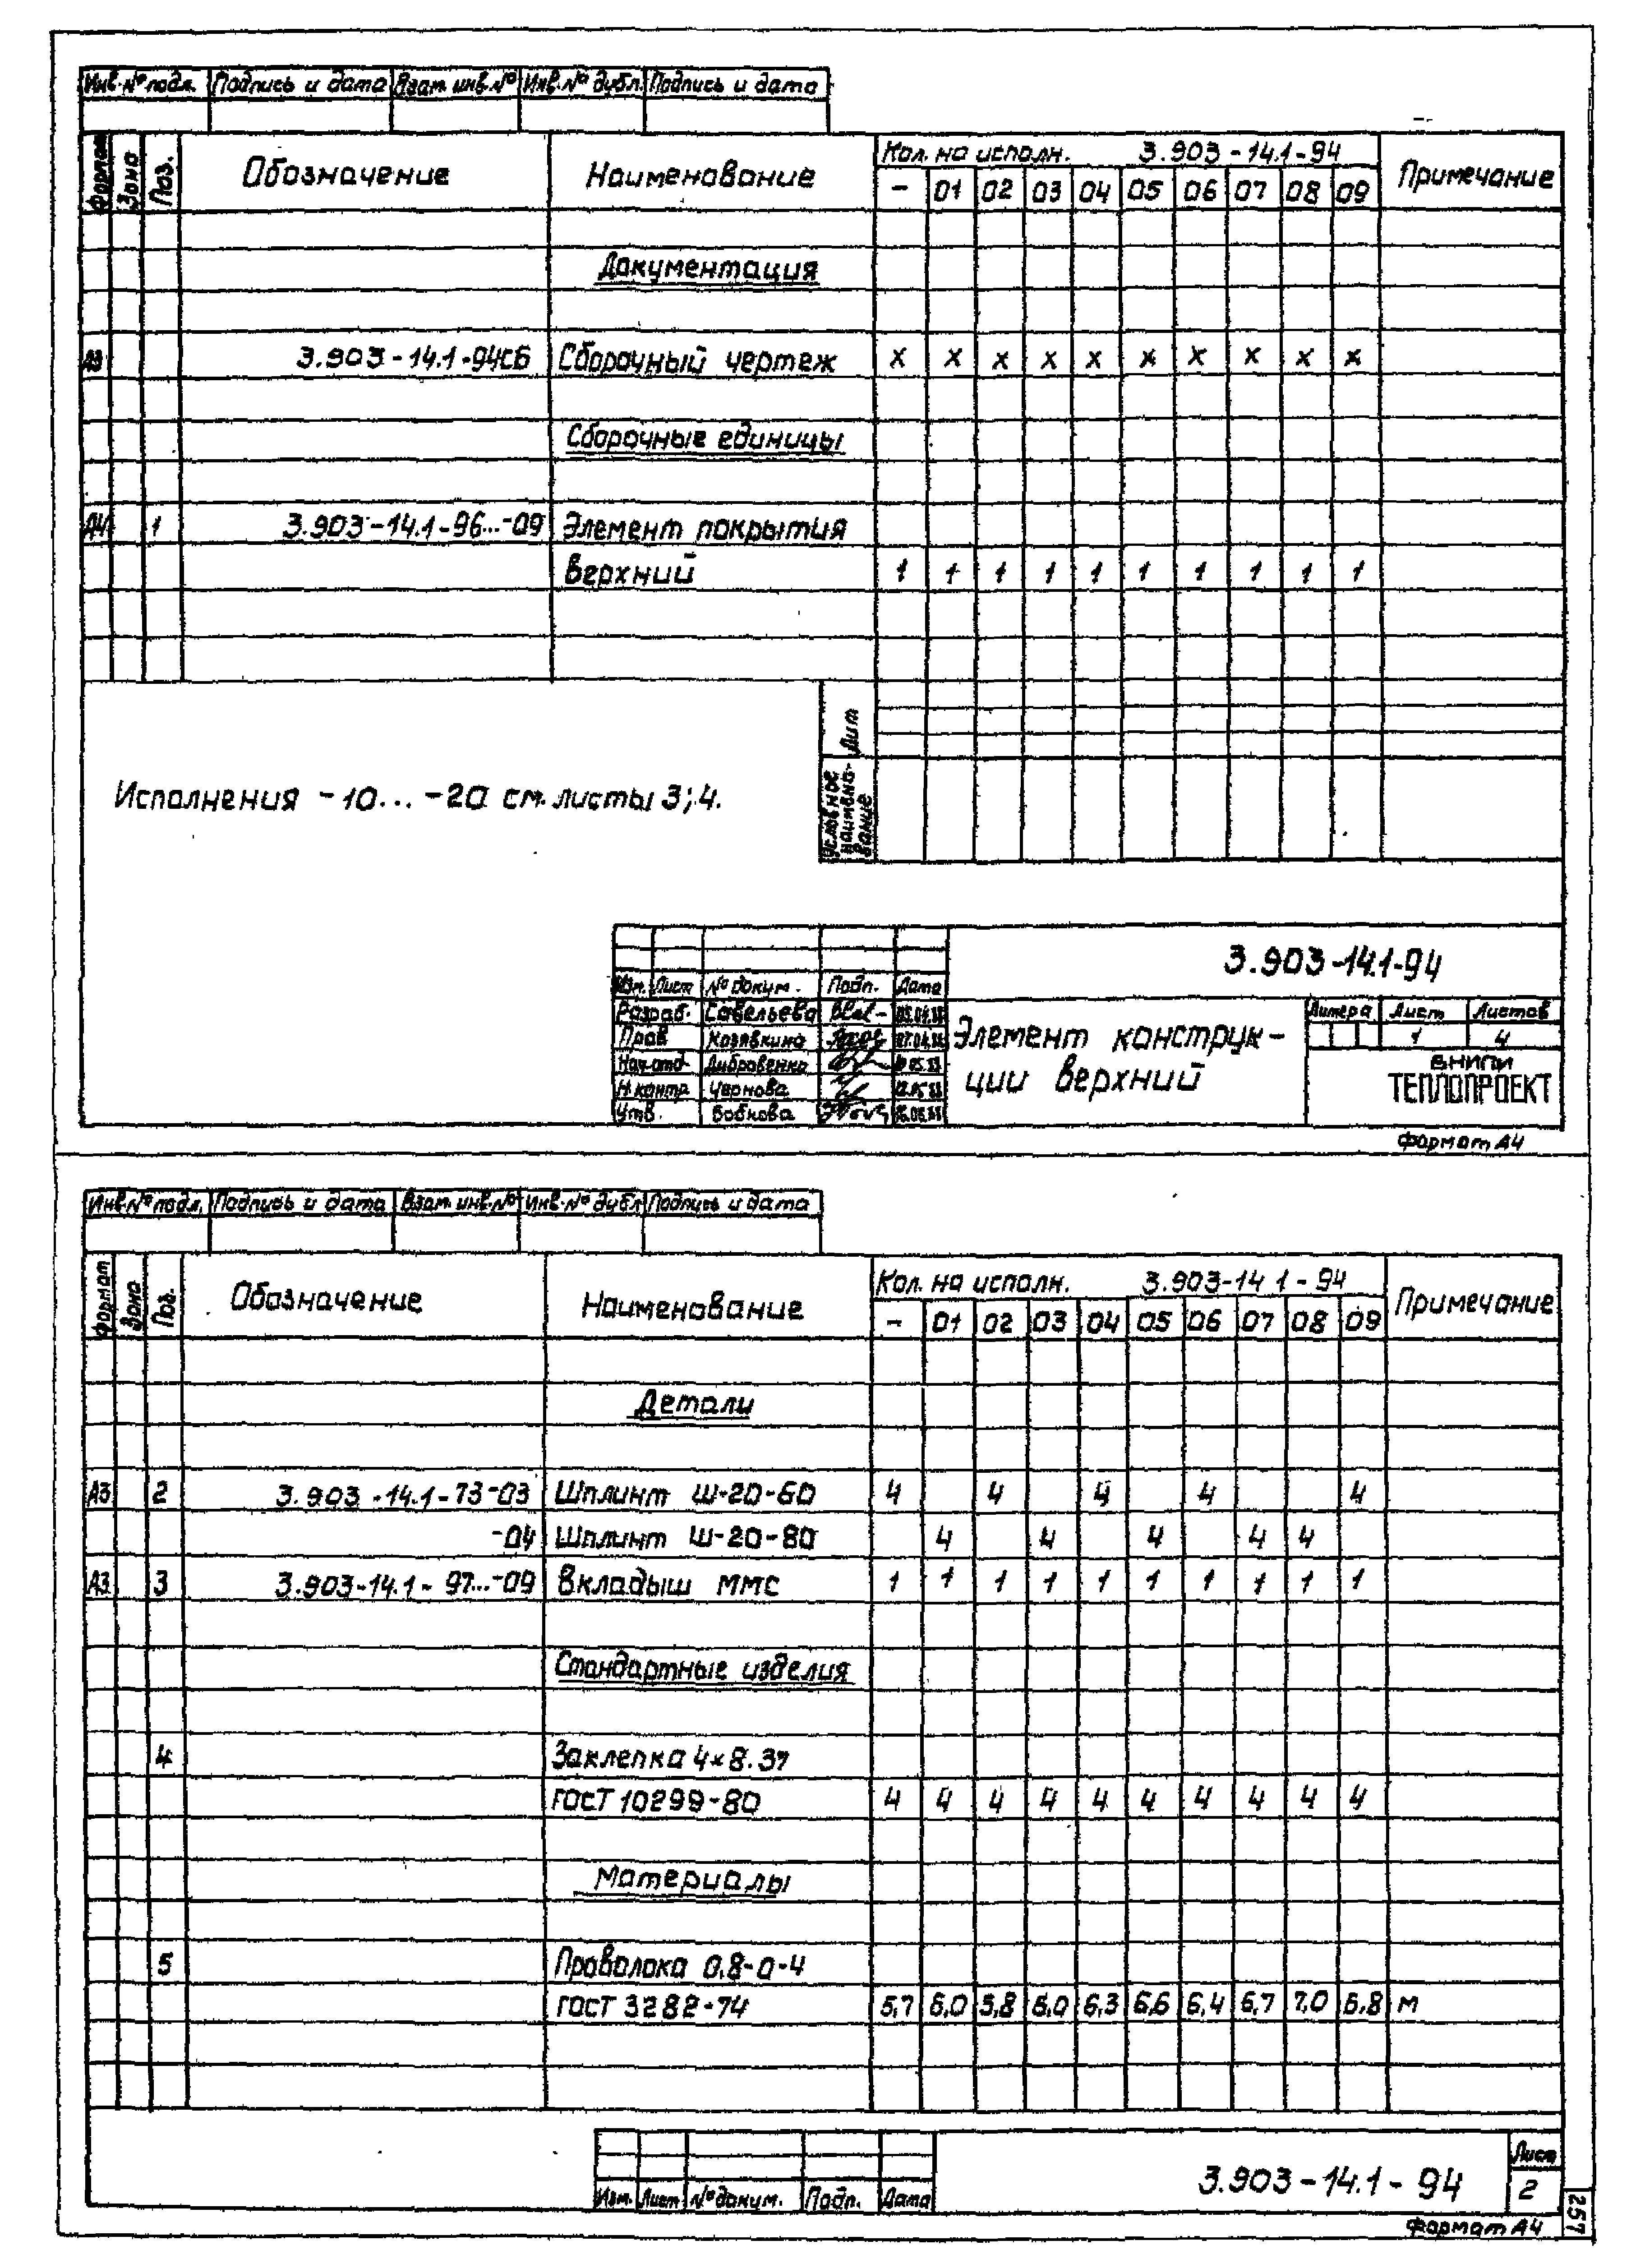 Инв.№ подл. Подпись и дата Взам. инв.№ Инв.№ дубл. Подпись и дата
Формат Зона Поз. Обозначение Наименование Кол. на исполн. 3.903-14.1-94 Примечание
- 01 02 03 04 05 06 07 08 09
Документация
А3 3.903-14.1-94СБ Сборочный чертеж х х х х х х х х х х
Сборочные единицы
А4 1 3.903-14.1-96...-09 Элемент покрытия
верхний 1 1 1 1 1 1 1 1 1 1
Лит
Условное наимено-вание
Исполнения -10... -20 см. листы 3; 4.
3.903-14.1-94
Изм. Лист № докум. Подп. Дата
Разраб. Савельева
Пров Козявкина
Нач.отд Дибровенко
Н.контр Чернова
Утв. Бобкова
Элемент конструк-
ции верхний
Литера Лист Листов
1 4
ВНИПИ
ТЕПЛОПРОЕКТ
Формат А4
Инв.№ подл. Подпись и дата Взам. инв.№ Инв.№ дубл Подпись и дата
Формат Зона Поз. Обозначение Наименование Кол. на исполн. 3.903-14.1-94 Примечание
- 01 02 03 04 05 06 07 08 09
Детали
А3 2 3.903-14.1-73-03 Шплинт Ш-20-60 4 4 4 4 4
-04 Шплинт Ш-20-80 4 4 4 4 4
А3 3 3.903-14.1-97...-09 Вкладыш ММС 1 1 1 1 1 1 1 1 1 1
Стандартные изделия
4 Заклепка 4х8.37
ГОСТ 10299-80 4 4 4 4 4 4 4 4 4 4
Материалы
5 Проволока 0,8-0-4
ГОСТ 3282-74 5,7 6,0 5,8 6,0 6,3 6,6 6,4 6,7 7,0 6,8 м
3.903-14.1-94
Лист
2
Изм. Лист № докум. Подп. Дата
Формат А4
257